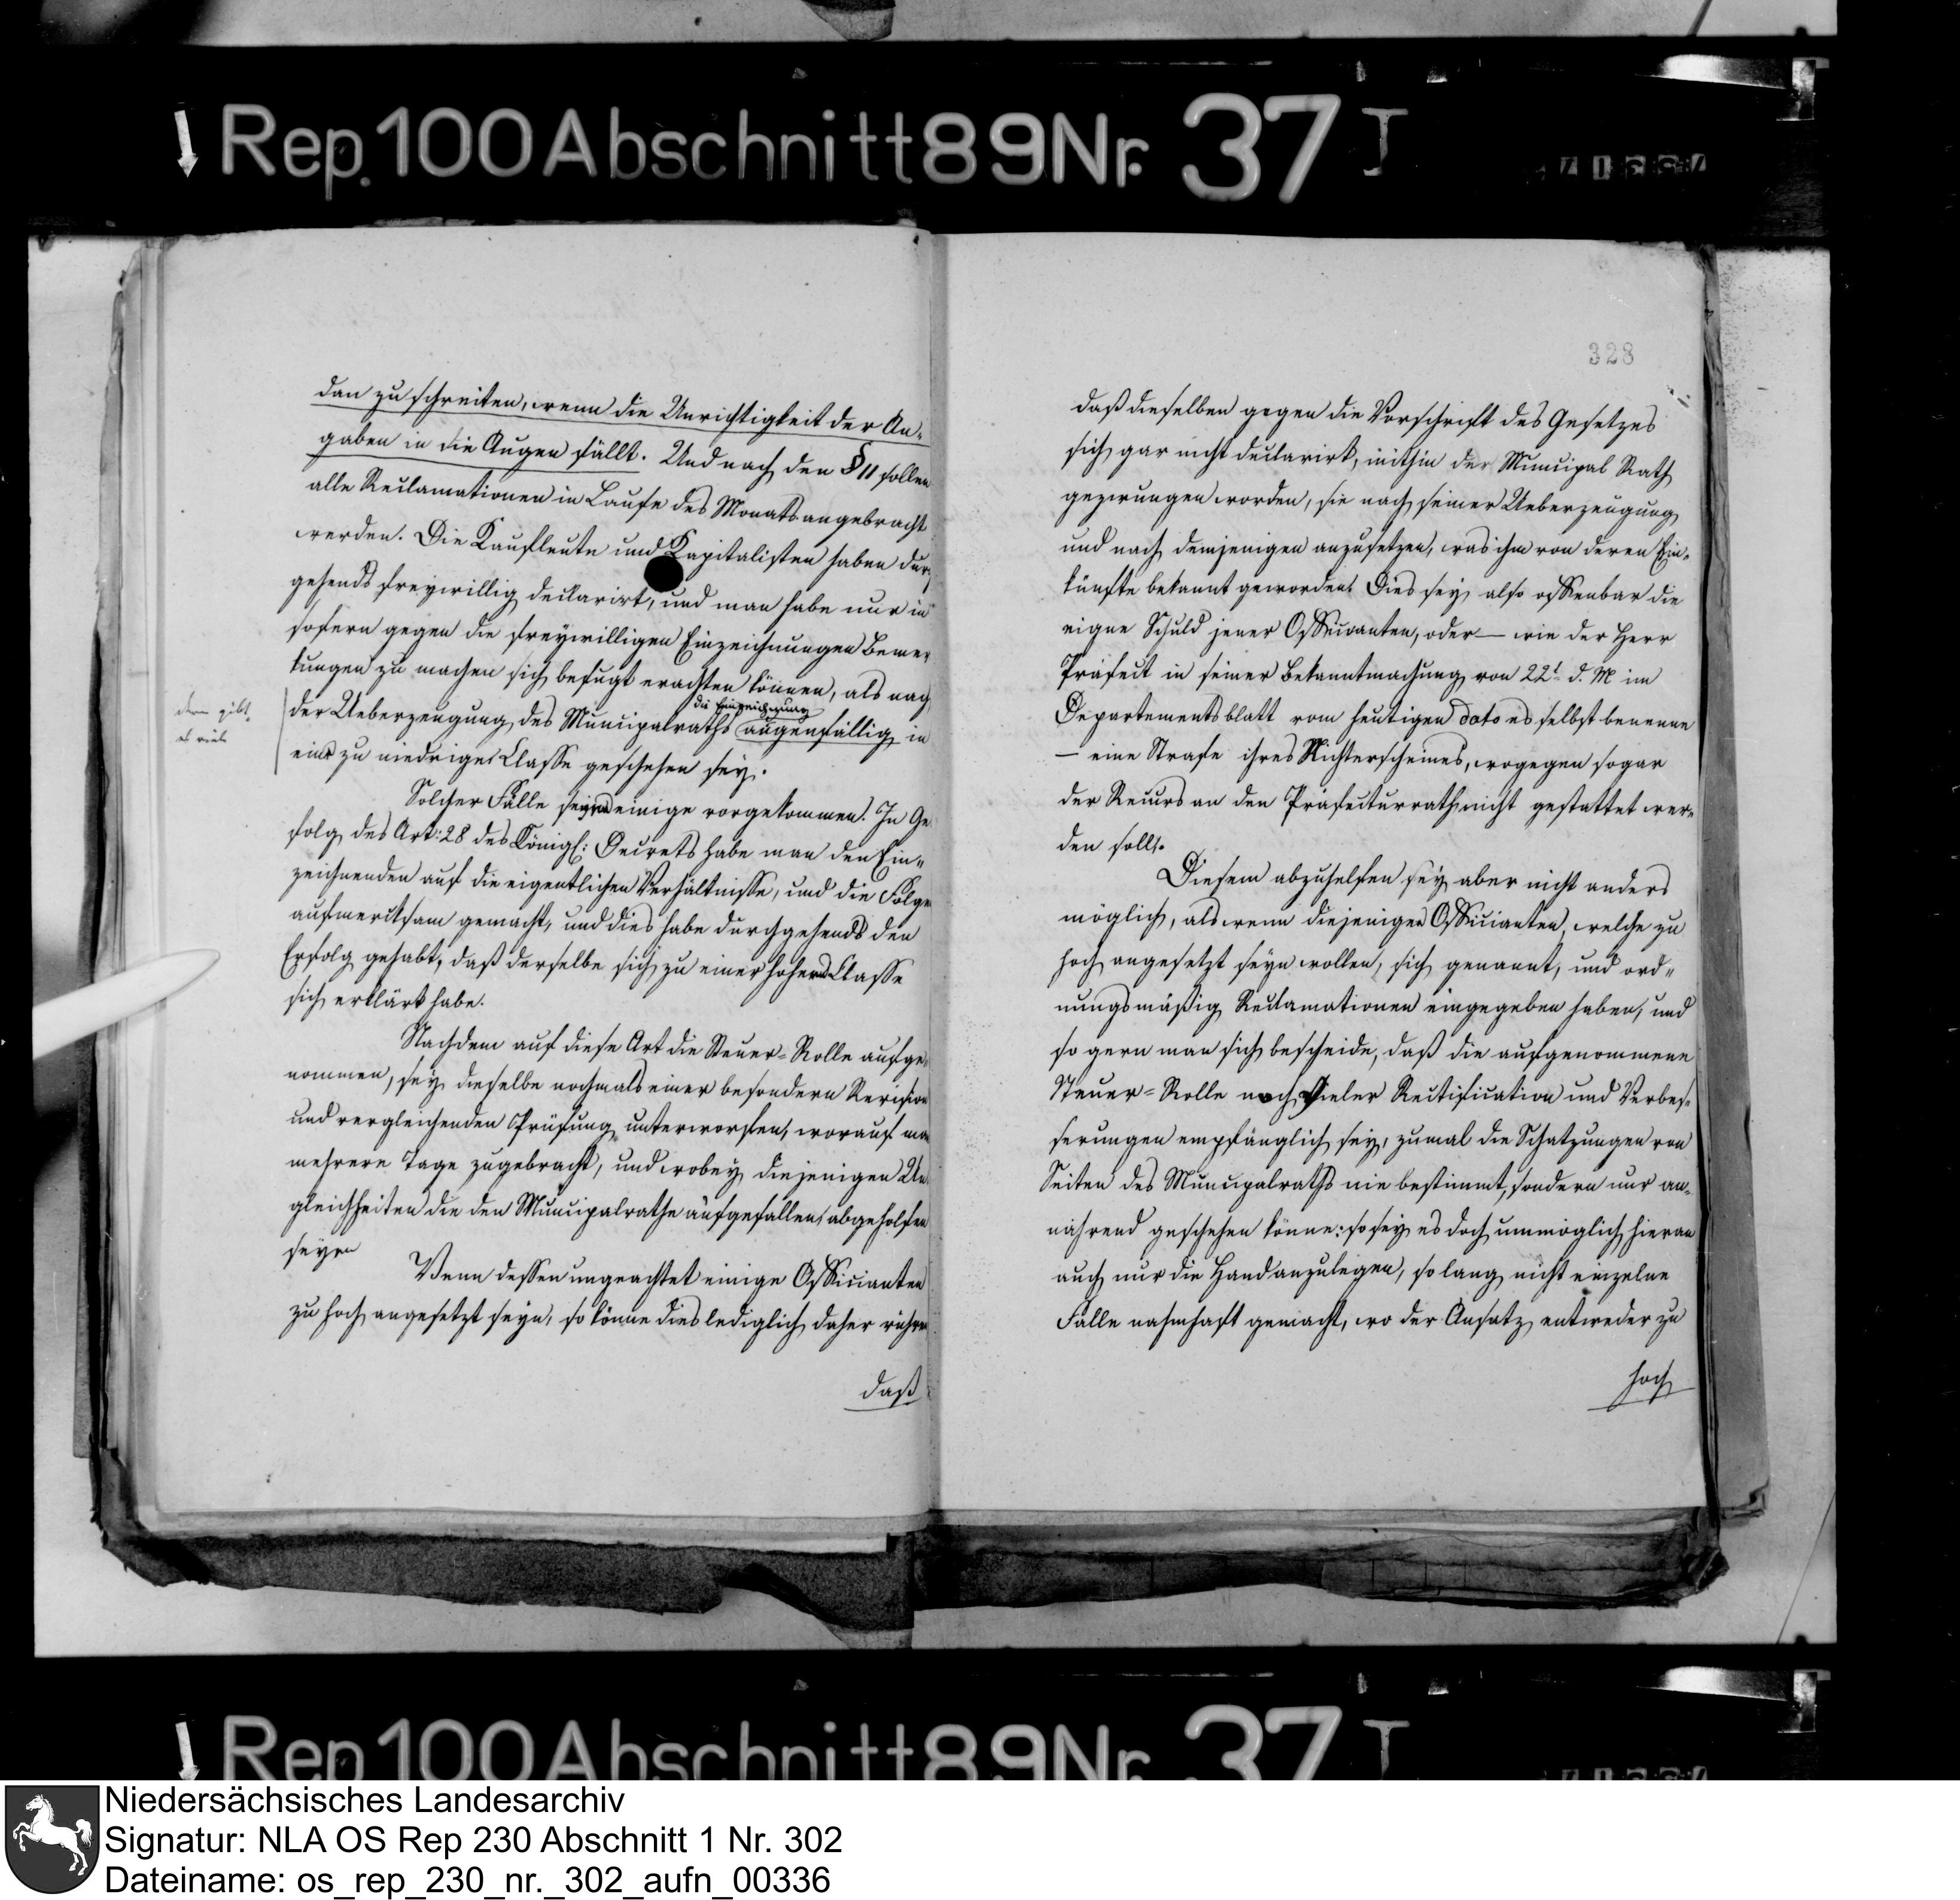 Rep. 100 Abschnitt 89 Nr. 37 I
dan zu schreiten, wenn die Unrichtigkeit der An-
gaben in die Augen fällt. Und nach den § 11 sollen
alle Reclamationen in Laufe des Monats angebracht
werden. Die Kaufleute und Kapitalisten haben durch
gehends freywillig declarirt, und man habe nur in
sofern gegen die freywilligen Einzeichnungen Bemer
kungen zu machen sich befugt erachten können, als nach
die Einzeichnung
der Ueberzeugung des Municipalraths augenfällig in
eine zu niedrige Classe geschehen sey.
Solcher Fälle seyn einige vorgekommen. In Ge
folg des Art: 28 des Königl: Decrets habe man den Ein-
zeichnenden auf die eigentlichen Verhältnisse, und die Folge
aufmercksam gemacht, und dies habe durchgehends den
Erfolg gehabt, daß derselbe sich zu einer hohern Classe
sich erklärt habe.
Nachdem auf diese Art die Steuer-Rolle aufge-
nommen, sey dieselbe nochmals einer besondern Revision
und vergleichenden Prüfung unterworfen, worauf man
mehrere Tage zugebracht, und wobey diejenigen Un
gleichheiten die den Municipalrathe aufgefallen, abgeholfen
seyn
Wenn dessen ungeachtet einige Officianten
zu hoch angesetzt seyn, so könne dies lediglich daher rühren
daß
328
daß dieselben gegen die Vorschrift des Gesetzes
sich gar nicht declarirt, mithin der Municipal Rath
gezwungen worden, sie nach seiner Ueberzeugung
und nach demjenigen anzusetzen, was ihm von deren Ein-
künfte bekannt geworden. Dies sey also offenbar die
eigne Schuld jener Officianten, oder — wie der Herr
Präfect in seiner Bekanntmachung von 22t d. M im
Departementsblatt vom heutigen dato es selbst benenne
— eine Strafe ihres Nichterscheines, wogegen sogar
der Recurs an den Präfecturrath nicht gestattet wer-
den soll.
Diesem abzuhelfen sey aber nicht anders
möglich, als wenn diejenigen Officianten, welche zu
hoch angesetzt seyn wollen, sich genannt, und ord-
nungsmäßig Reclamationen eingegeben haben, und
so gern man sich bescheide, daß die aufgenommene
Steuer-Rolle noch vieler Rectification und Verbes-
serungen empfänglich sey, zumal die Schatzungen von
Seiten des Municipalraths nie bestimmt, sondern nur an-
nährend geschehen könne: so sey es doch unmöglich hieran
auch nur die Hand anzulegen, so lang nicht einzelne
Fälle nahmhaft gemacht, wo der Ansatz entweder zu
hoch
Rep 100 Abschnitt 89 Nr. 37 I
Niedersächsisches Landesarchiv
Signatur: NLA OS Rep 230 Abschnitt 1 Nr. 302
Dateiname: os_rep_230_nr._302_aufn_00336